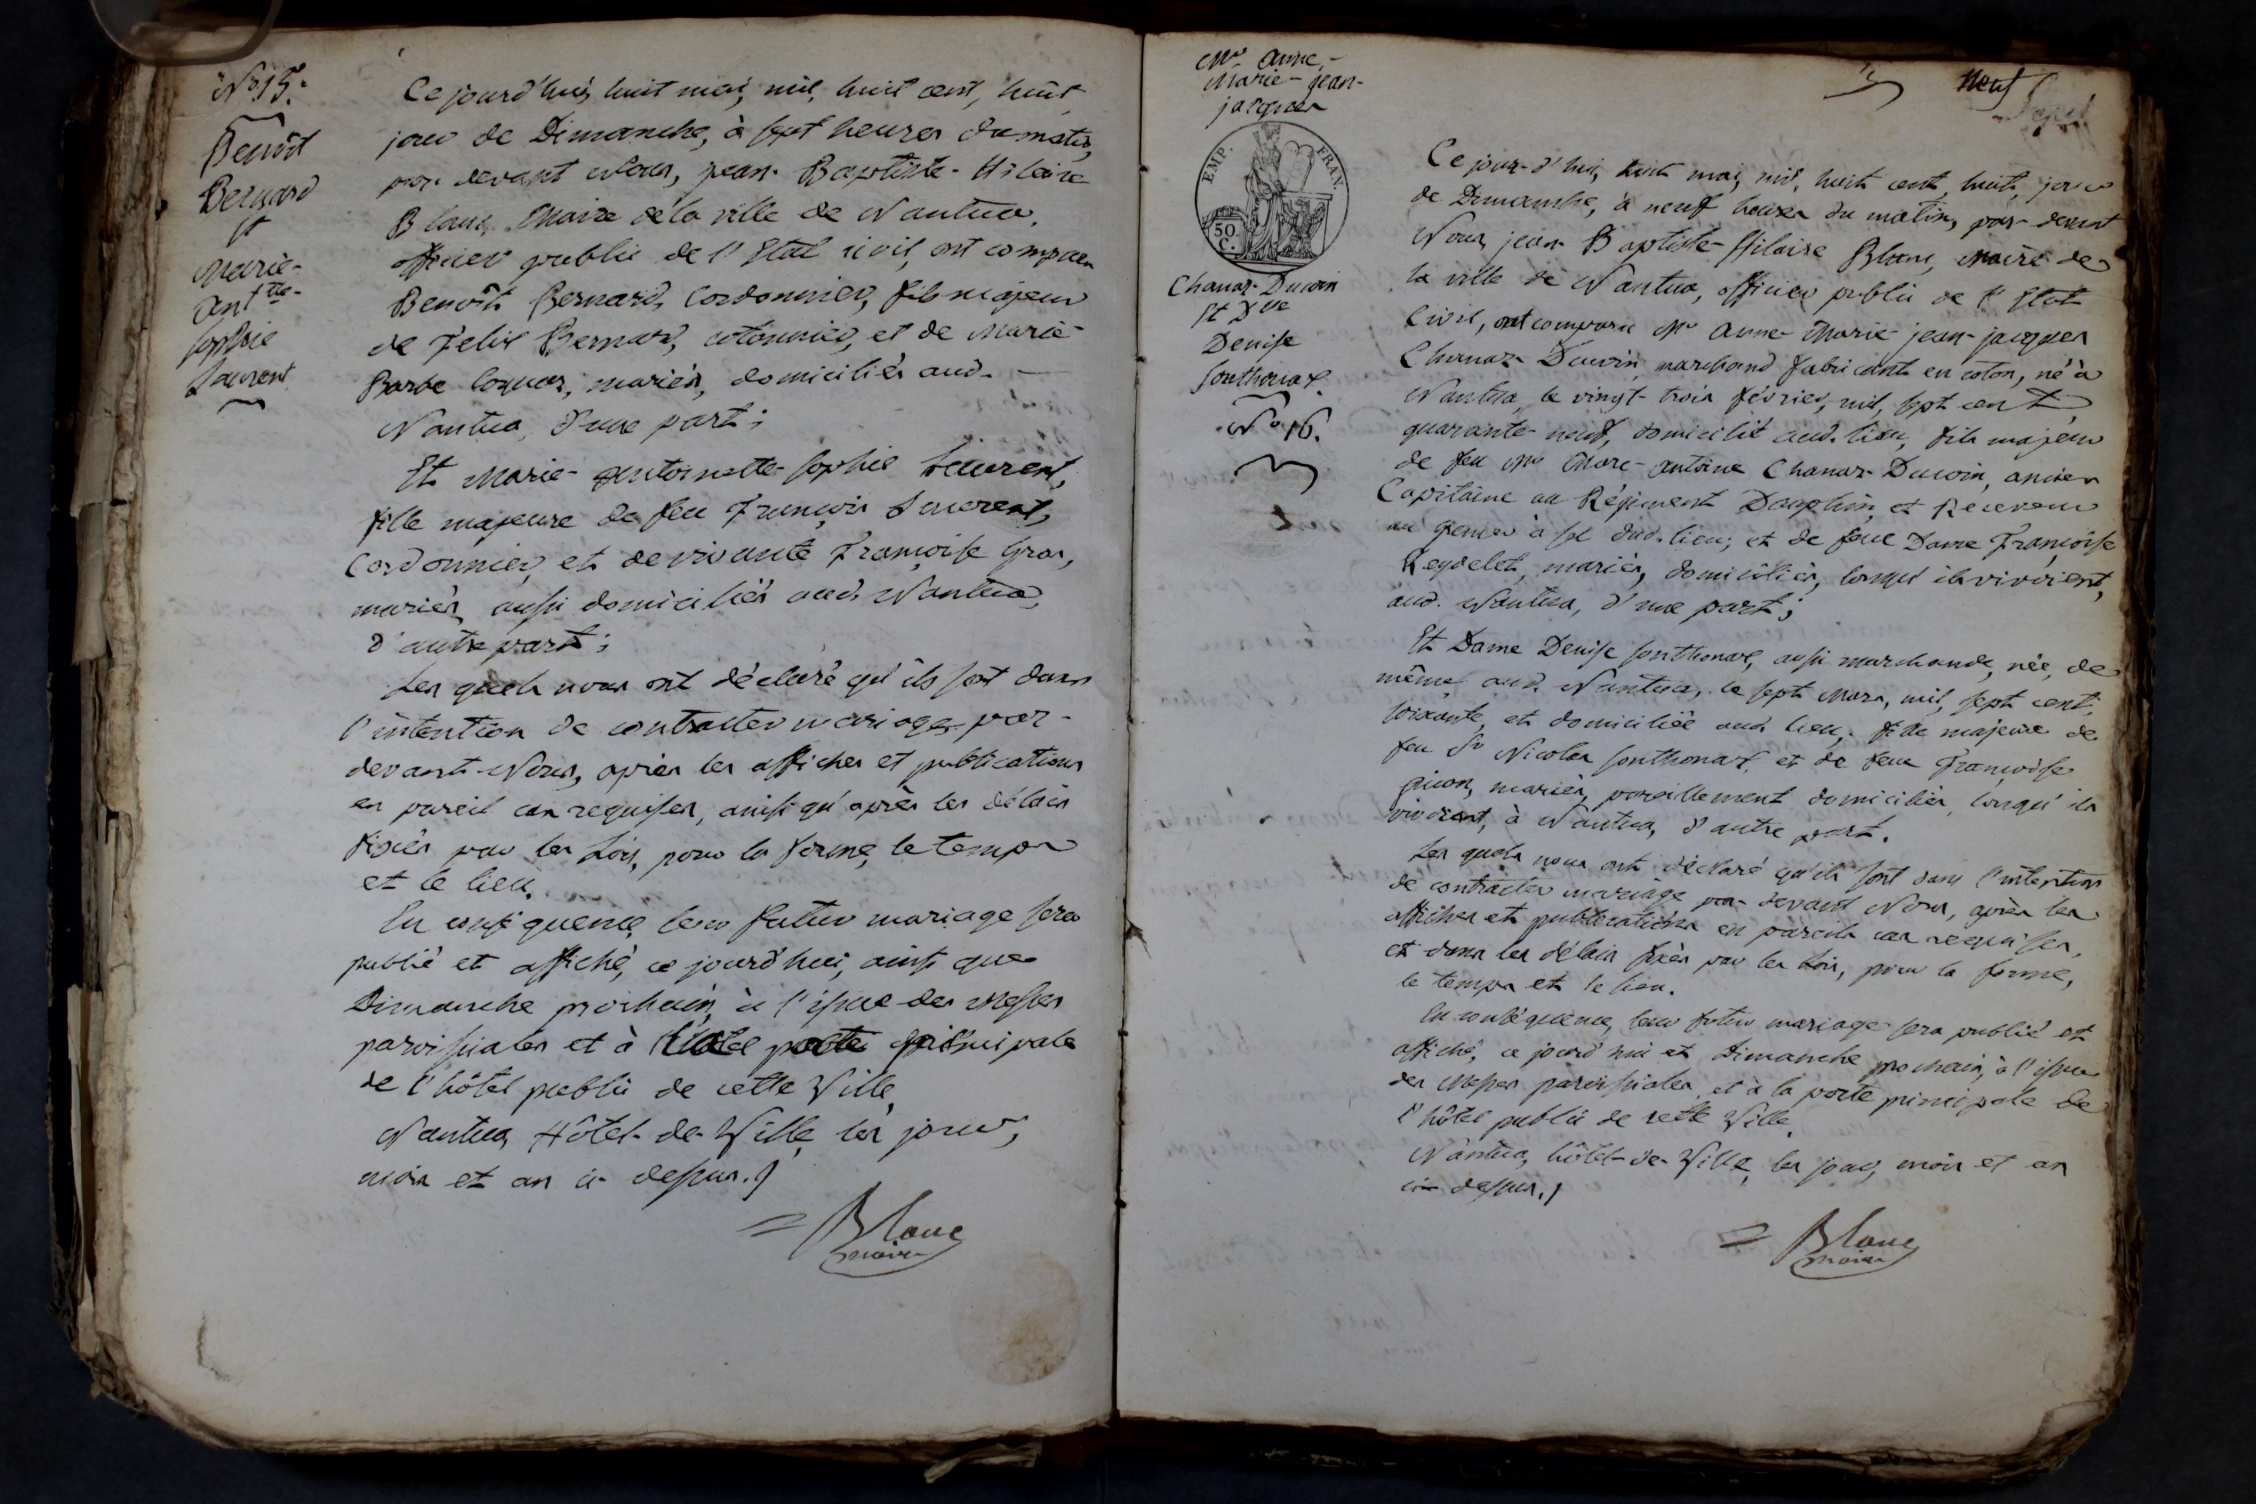 N° 15.
Benoît
Bernard
et
Marie-
Ant.tte-
Sophie
Laurent
Ce jourd'hui, huit mai, mil, huit cent, huit,
jour de Dimanche, à sept heures du matin,
par-devant Nous, jean-Baptiste-Hilaire
Blanc, Maire de la ville de Nantua,
officier public de l'Etat civil, ont comparu
Benoît Bernard, Cordonnier, fils majeur
de Felix Bernard, cotonnier, et de Marie-
Barbe, mariés, domiciliés aud.
Nantua, d'une part;
Et Marie-Antoinette-Sophie Laurent,
fille majeure de feu François Laurent,
Cordonnier, et de vivante Françoise Gros,
mariés, aussi domiciliés aud. Nantua,
d'autre part;
Les quels nous ont déclaré qu'ils sont dans
l'intention de contracter mariage par-
devant Nous, après les affiches et publications
en pareil cas requises, ainsi qu'après les délais
fixés par les Lois, pour la forme, le temps
et le lieu.
En conséquence, leur futur mariage sera
publié et affiché, ce jourd'hui, ainsi que
Dimanche prochain, à l'issue des Messes
paroissiales et à porte principale
de l'hôtel public de cette Ville.
Nantua, Hôtel-de-Ville, les jour,
mois et an ci-dessus.
Blanc
maire
Mr. Anne-
Marie-jean-
jacques
EMP. FRAN.
50. C.
Chanaz-Duvoin
Et Dme
Denise
Sonthonax.
N° 16.
neuf
Ce jour-d'hui, huit mai, mil, huit cent, huit, jour
de Dimanche, à neuf heures du matin, par-devant
Nous, jean-Baptiste-Hilaire Blanc, Maire de
la ville de Nantua, officier public de l'Etat
Civil, ont comparu Mr. Anne-Marie-jean-jacques
Chanaz-Duvoin, marchand fabricant en coton, né à
Nantua, le vingt-trois février, mil, sept cent
quarante-neuf, domicilié aud. lieu, fils majeur
de feu Mr. Marc-Antoine Chanaz-Duvoin, ancien
Capitaine au Régiment Dauphin, et Receveur
au grenier à sel dud. lieu; et de feue Dame Françoise
Reydelet, mariés, domiciliés, lorsqu'ils vivoient,
aud. Nantua, d'une part;
Et Dame Denise Sonthonax, aussi marchande, née, de
même, aud. Nantua, le sept Mars, mil, sept cent,
soixante, et domiciliée aud. lieu, fille majeure de
feu Sr. Nicolas Sonthonax, et de feue Françoise
mariés, pareillement domiciliés, lorsqu'ils
vivoient, à Nantua, d'autre part.
Les quels nous ont déclaré qu'ils sont dans l'intention
de contracter mariage par-devant Nous, après les
affiches et publications en pareils cas requises,
et dans les délais fixés par les Lois, pour la forme,
le temps et le lieu.
En conséquence, leur futur mariage sera publié et
affiché, ce jourd'hui et Dimanche prochain, à l'issue
des Messes paroissiales, et à la porte principale de
l'hôtel public de cette Ville.
Nantua, hôtel-de-Ville, les jour, mois et an
ci-dessus.
Blanc
maire